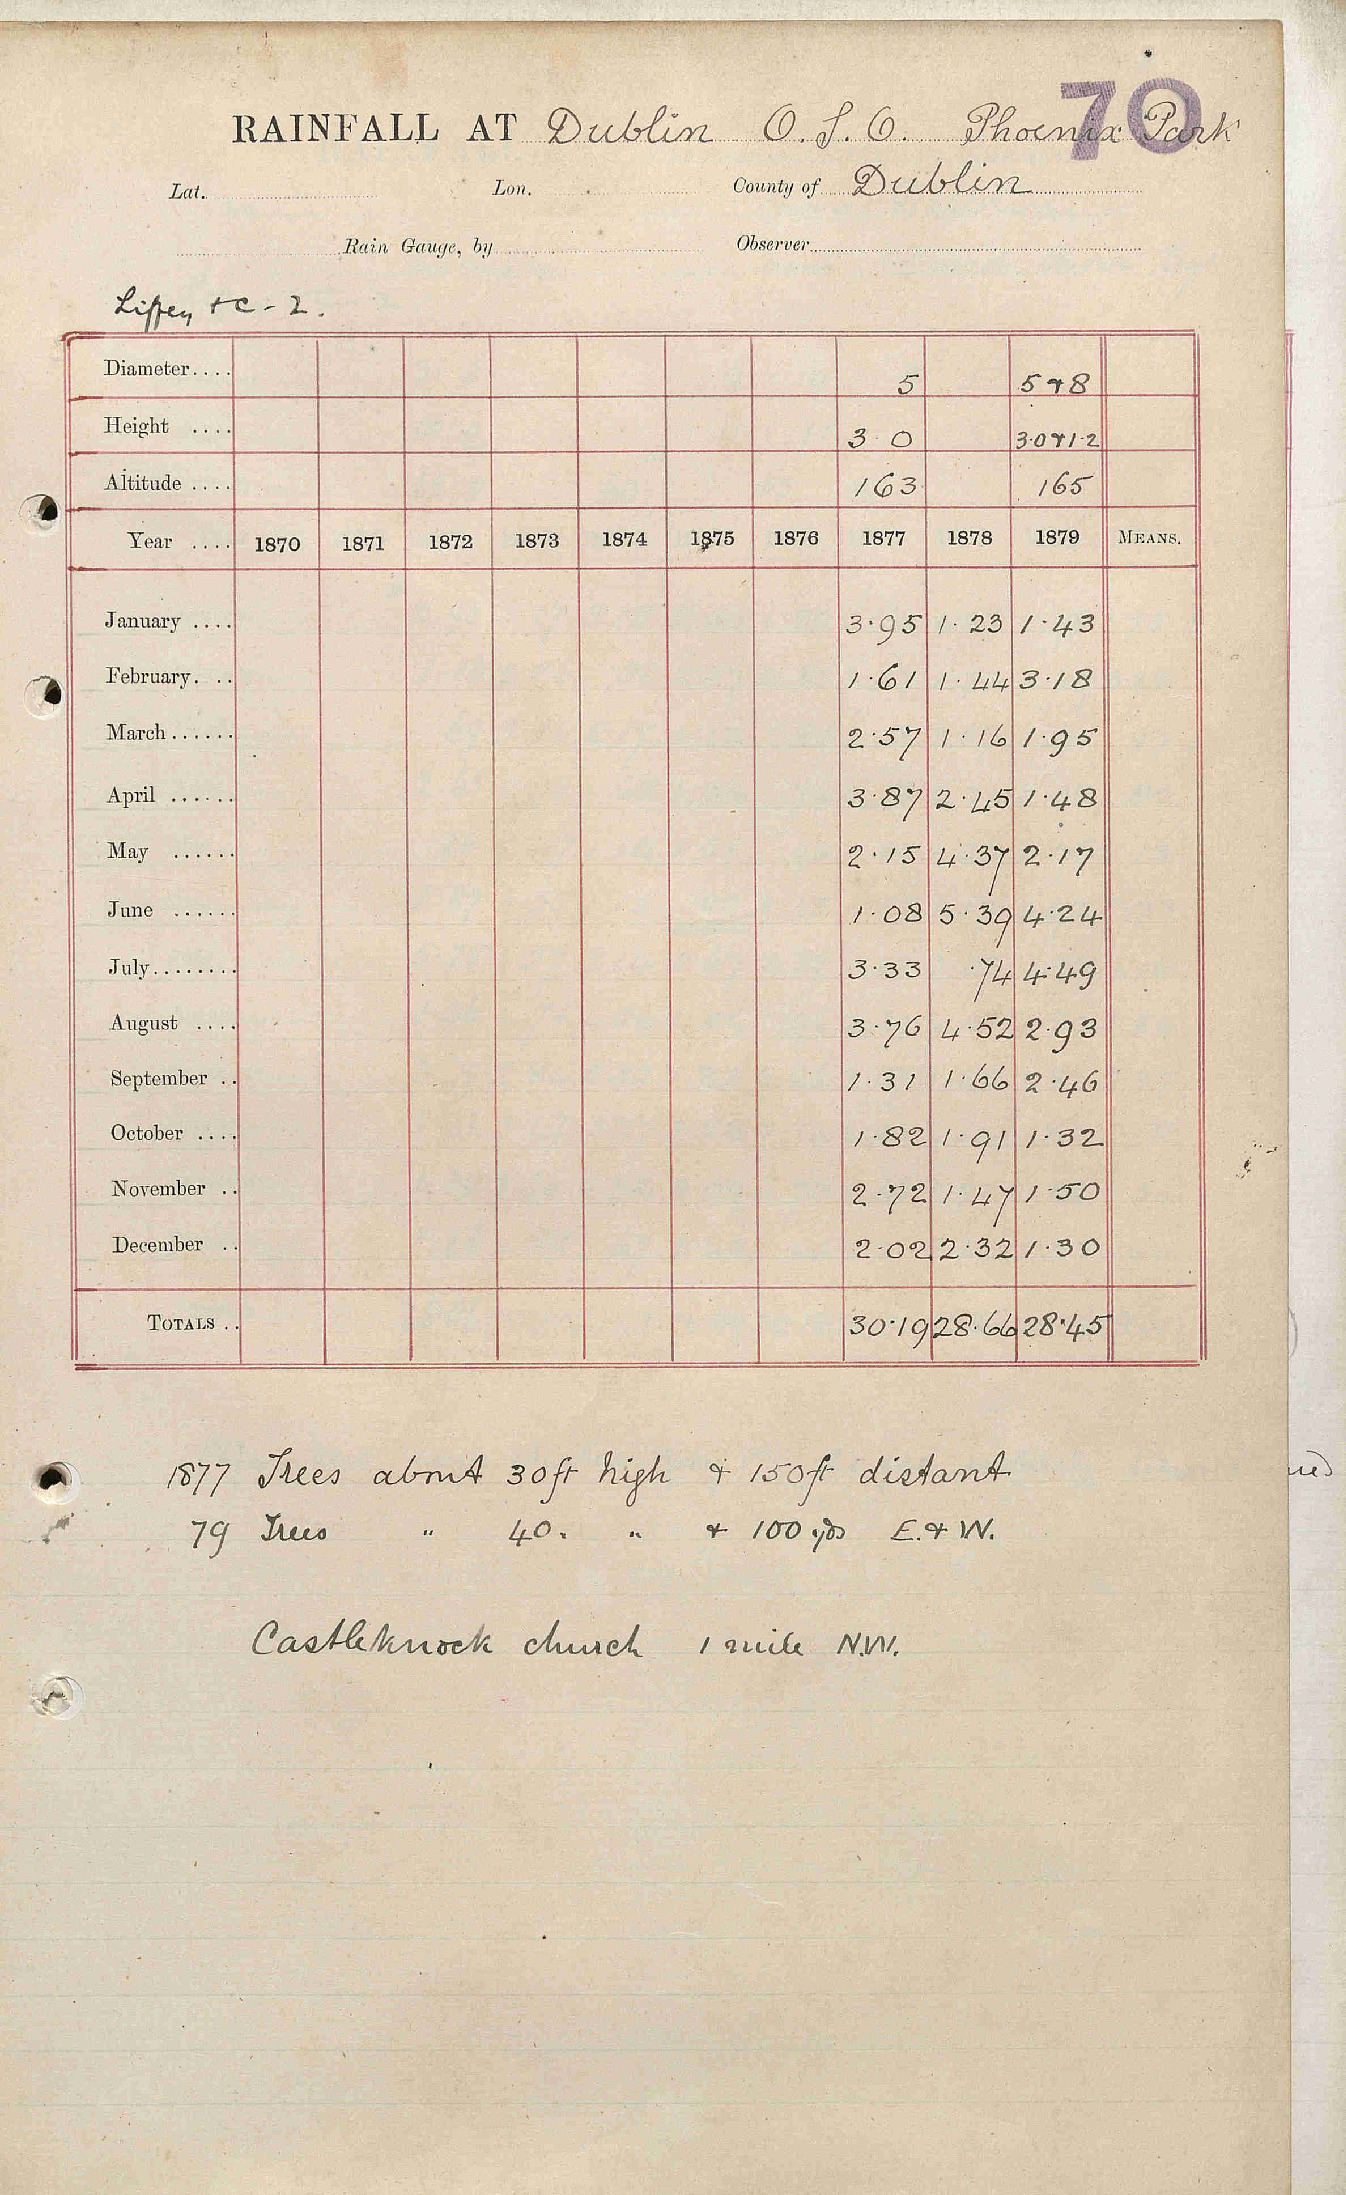 70
RAINFALL AT Dublin O.S.O. Phoenix Park
Lat. Lon. County of Dublin
Rain Gauge, by Observer
Liffey &c - 2.
Diameter.... 5 5 & 8
Height .... 3 0 3·0 & 1·2
Altitude .... 163 165
Year .... 1870 1871 1872 1873 1874 1875 1876 1877 1878 1879 MEANS.
January .... 3·95 1·23 1·43
February. .. 1·61 1·44 3·18
March...... 2·57 1·16 1·95
April ...... 3·87 2·45 1·48
May ...... 2·15 4·37 2·17
June ...... 1·08 5·39 4·24
July........ 3·33 ·74 4·49
August .... 3·76 4·52 2·93
September .. 1·31 1·66 2·46
October .... 1·82 1·91 1·32
November .. 2·72 1·47 1·50
December .. 2·02 2·32 1·30
TOTALS .. 30·19 28·66 28·45
1877 Trees about 30ft high & 150ft distant
79 Trees " 40 " " & 100 yds E. & W.
Castleknock church 1 mile N.W.